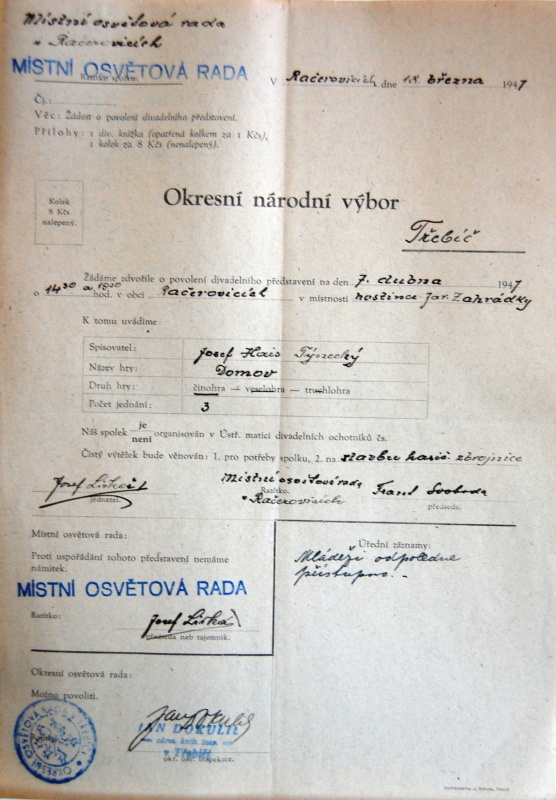 Místní osvětová rada
v Račerovicích
MÍSTNÍ OSVĚTOVÁ RADA
Razítko spolku:
V Račerovicích dne 18. března 1947
Čj.:
Věc: Žádost o povolení divadelního představení.
Přílohy: 1 div. knížka (opatřená kolkem za 1 Kčs),
1 kolek za 8 Kčs (nenalepený).
Kolek
8 Kčs
nalepený.
Okresní národní výbor
Třebíč
Žádáme zdvořile o povolení divadelního představení na den 7. dubna 1947
o 14³⁰ a 19³⁰ hod. v obci Račerovicích v místnosti hostince Jar. Zahrádky
K tomu uvádíme:
Spisovatel: Josef Hais Týnecký
Název hry: Domov
Druh hry: činohra — veselohra — truchlohra
Počet jednání: 3
Náš spolek je
není organisován v Ústř. matici divadelních ochotníků čs.
Čistý výtěžek bude věnován: 1. pro potřeby spolku, 2. na stavbu hasič. zbrojnice
Místní osvětová rada
v Račerovicích
Razítko.
Frant Svoboda
jednatel.
předseda.
Místní osvětová rada:
Proti uspořádání tohoto představení nemáme
námitek.
MÍSTNÍ OSVĚTOVÁ RADA
Razítko:
předseda neb tajemník.
Úřední záznamy:
Mládeži odpoledne
přístupno.-
Okresní osvětová rada:
Možno povoliti.
JAN DOKULIL
v Třebíči
okr. osv. inspektor.